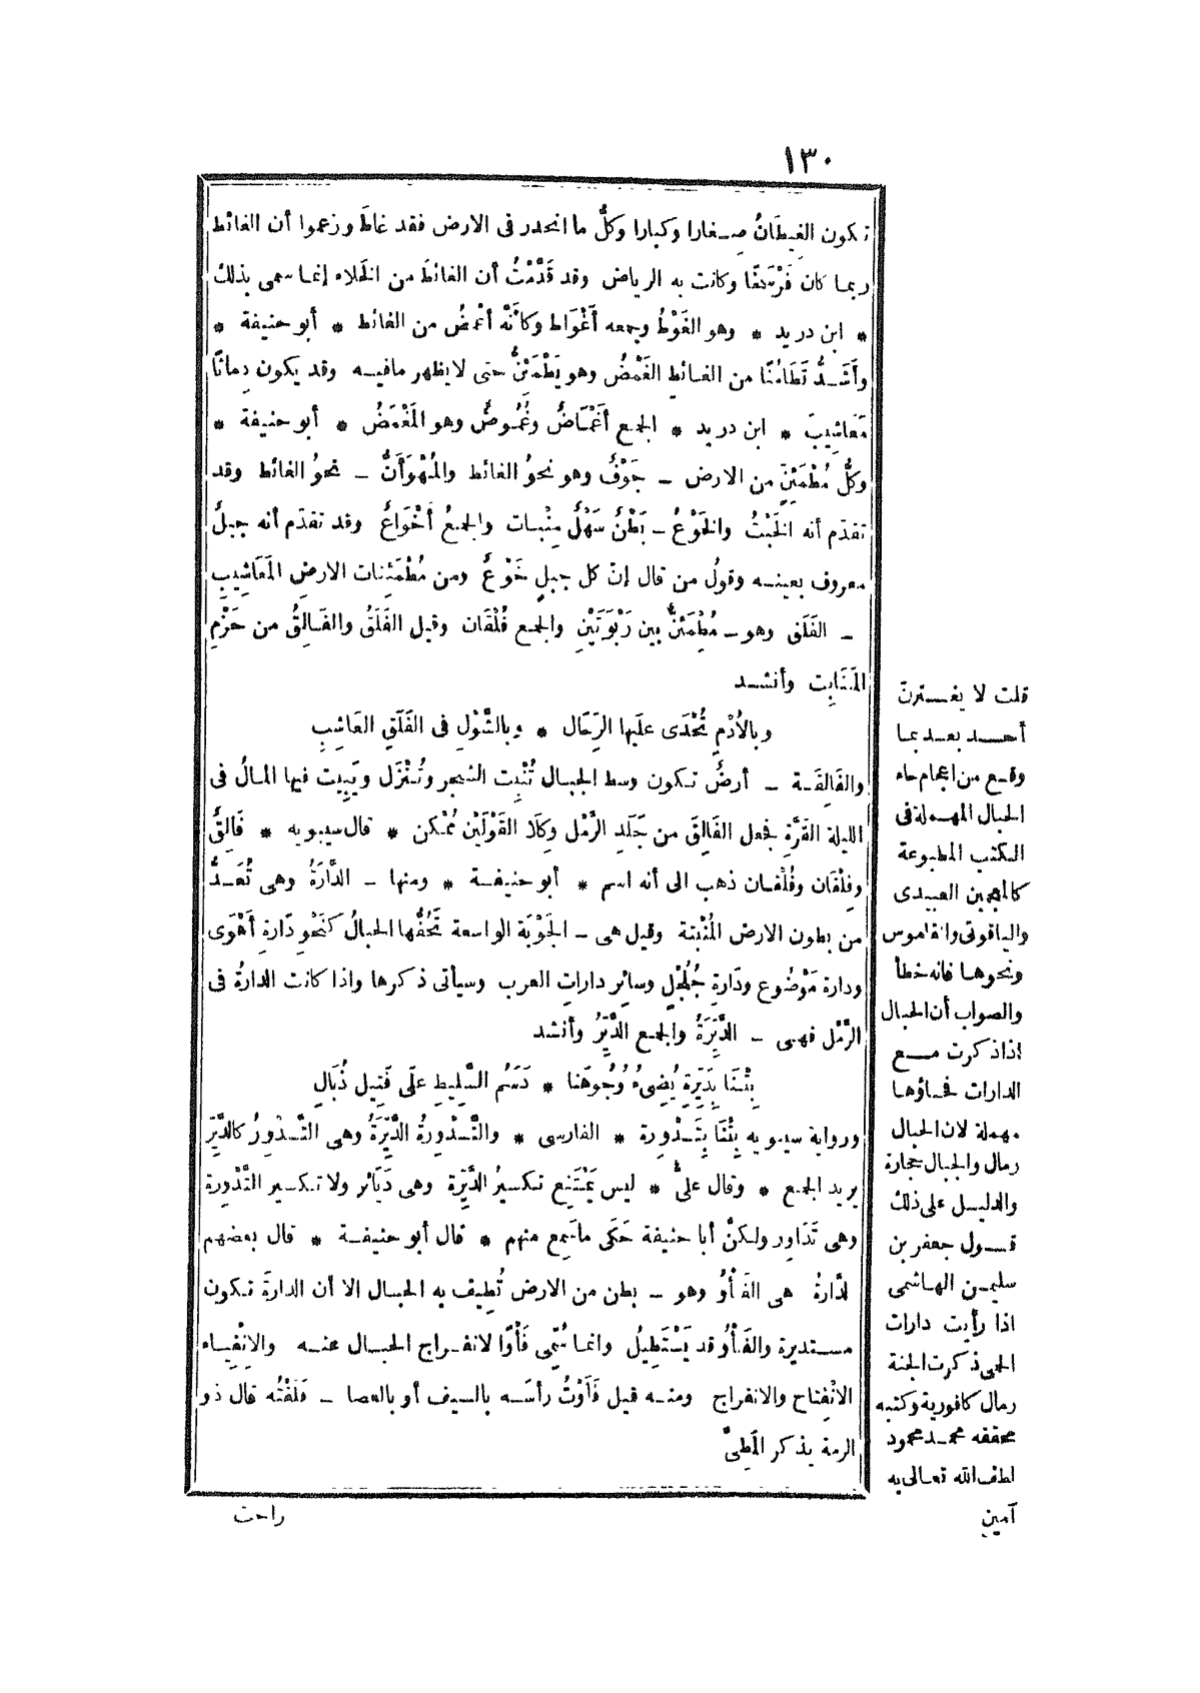 ١٣٠
تكون الغِيطَانُ صغارا وكبارا وكلُّ ما انحدر فى الارض فقد غاطَ وزعموا أن الغائط
ربما كان فَرْسَخًا وكانت به الرياض وقد قَدَّمْتُ أن الغائطَ من الخَلاء إنما سمى بذلك
* ابن دريد * وهو الغَوْطُ وجمعه أَغْوَاط وكأنَّه أغْمضُ من الغائط * أبو حنيفة *
وأَشَدُّ تَطَامُنًا من الغائطِ الغَمْضُ وهو يَطْمَئِنُّ حتى لا يظهر مافيه وقد يكون دِماثًا
مَعَاشِيبَ * ابن دريد * الجمع أَغْمَاضٌ وغُمُوضٌ وهو المَغْمَضُ * أبو حنيفة *
وكلُّ مُطْمَئِنٍّ من الارض ــ جَوْفٌ وهو نحوُ الغائط والمُهْوَأَنُّ ــ نحوُ الغائط وقد
تقدّم أنه الخَبْتُ والخَوْعُ ــ بَطْنٌ سَهْلٌ مِنْبات والجمعُ أَخْوَاعٌ وقد تقدّم أنه جبلٌ
معروف بعينه وقولُ من قال إنّ كل جبلٍ خَوْعٌ ومن مُطْمَئِنات الارضِ المَعَاشِيبِ
ــ الفَلَق وهو ــ مُطْمَئنٌّ بين رَبْوَتَيْنِ والجمع فُلْقَان وقيل الفَلَقُ والفَالِقُ من حَزْمِ
المَنَابِت وأنشد
وبالأُدْمِ تُحْدَى علَيها الرِّحَال * وبالشَّوْلِ فى الفَلَقِ العَاشِبِ
والفَالِقَة ــ أرضٌ تكون وسط الجبال تُنْبِت الشجر وتُنْزَل ويَبِيت فيها المالُ فى
الليلة القَرَّةِ فجعل الفَالِقَ من جَلَدِ الرَّمْل وكِلَا القَوْلَيْن مُمْكن * قال سيبويه * فَالِقٌ
وفِلْقَان وفُلْقان ذهب الى أنه اسم * أبو حنيفة * ومنها ــ الدَّارَةُ وهى تُعَدُّ
من بطون الارض المُنْبِتة وقيل هى ــ الجَوْبَة الواسعة تَحُفُّها الحبالُ كَنَحْوِ دَارةِ أَهْوَى
ودارة مَوْضُوع ودَارةِ جُلْجُلٍ وسائِر داراتِ العرب وسيأتى ذكرها واذا كانت الدارةُ فى
الرَّمْل فهى ــ الدَّيِّرَةُ والجمع الدَّيِّرُ وأنشد
بِتْنَا بِدَيِّرَةٍ يُضِىءُ وُجُوهَنا * دَسَمُ السَّلِيطِ علَى فَتِيلِ ذُبَالِ
ورواية سيبويه بِتْنَا بِتَدْوِرة * الفارسى * والتَّدْوِرةُ الدَّيِّرَةُ وهى التَّدْوِرُ كالدَّيِّر
يريد الجمع * وقال علىٌّ * ليس يَمْتَنِع تكسيرُ الدَّيِّرة وهى دَيَائر ولا تكسير التَّدْوِرة
وهى تَدَاوِر ولكنّ أبا حنيفة حَكَى ماسَمِع منهم * قال أبو حنيفة * قال بعضهم
لدَّارةُ هى الفَأْوُ وهو ــ بطن من الارض تُطِيف به الحبال الا أن الدارةَ تكون
مستديرة والفَأْوُ قد يَسْتَطِيلُ وانما سُمِّى فَأْوًا لانفراج الحبال عنه والانْفِياء
الانْفِتاح والانفراج ومنه قيل فَأَوْتُ رأسَه بالسيف أو بالعصا ــ فَلَقْتُه قال ذو
الرمة يذكر المَطِىَّ
راحت
قلت لا يغترنّ
أحد بعد بما
وقع من اعجام حاء
الحبال المهملة فى
الكتب المطبوعة
كالمعجمين العبيدى
والياقوتى والقاموس
ونحوها فانه خطأ
والصواب أن الحبال
اذا ذكرت مع
الدارات فحاؤها
مهملة لان الحبال
رمال والجبال حجارة
والدليل على ذلك
قول جعفر بن
سليمن الهاشمى
اذا رأيت دارات
الحمى ذكرت الجنة
رمال كافورية وكتبه
محققه محمد محمود
لطف الله تعالى به
آمين